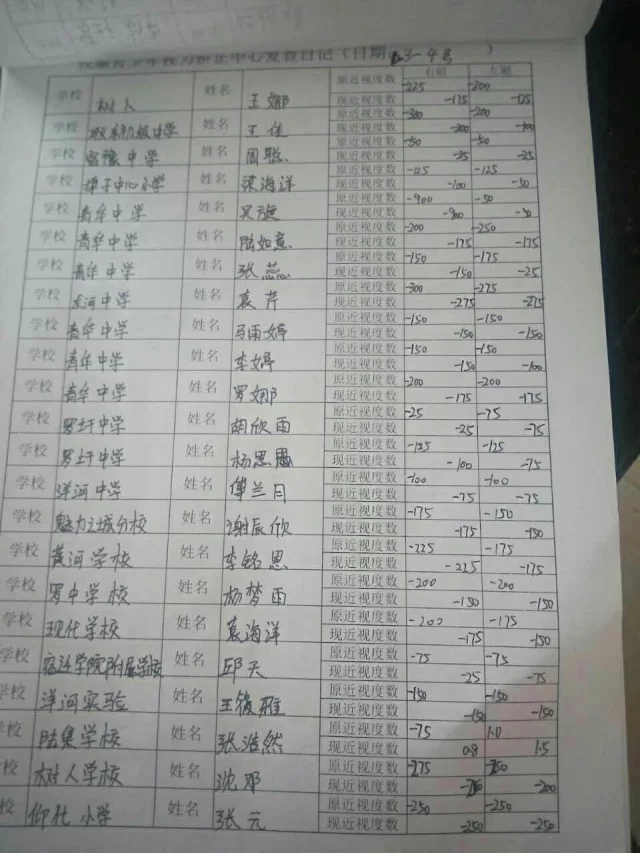 中心复查日记(日期 3-4号 )
右眼 左眼
学校 树人 姓名 王娜 原近视度数 -225 -200
现近视度数 -175 -125
学校 中学 姓名 王佳 原近视度数 -300 -200
现近视度数 -200 -100
学校 中学 姓名 周聪 原近视度数 -50 -50
现近视度数 -25 -25
学校 中心小学 姓名 梁海洋 原近视度数 -125 -125
现近视度数 -100 -50
学校 青华中学 姓名 吴旋 原近视度数 -900 -50
现近视度数 -900 -50
学校 青华中学 姓名 陆如意 原近视度数 -200 -250
现近视度数 -175 -175
学校 青华中学 姓名 张蕊 原近视度数 -150 -175
现近视度数 -150 -25
学校 中学 姓名 袁芹 原近视度数 -300 -275
现近视度数 -275 -275
学校 青华中学 姓名 马雨婷 原近视度数 -150 -150
现近视度数 -150 -150
学校 青华中学 姓名 李婷 原近视度数 -150 -150
现近视度数 -150 -100
学校 青华中学 姓名 罗娜 原近视度数 -200 -200
现近视度数 -175 -175
学校 罗圩中学 姓名 胡欣雨 原近视度数 -25 -75
现近视度数 -25 -75
学校 罗圩中学 姓名 杨思 原近视度数 -125 -125
现近视度数 -100 -75
学校 洋河中学 姓名 傅兰月 原近视度数 -100 -100
现近视度数 -75 -75
学校 魅力之城分校 姓名 谢辰欣 原近视度数 -175 -150
现近视度数 -175 -150
学校 黄河学校 姓名 李铭思 原近视度数 -225 -175
现近视度数 -225 -175
学校 罗中学校 姓名 杨梦雨 原近视度数 -200 -200
现近视度数 -150 -150
学校 现代学校 姓名 袁海洋 原近视度数 -200 -175
现近视度数 -175 -150
学校 宿迁学院附属学校 姓名 邱天 原近视度数 -75 -75
现近视度数 -25 -75
学校 洋河实验 姓名 王雅 原近视度数 -150 -150
现近视度数 -150 -150
学校 陆集学校 姓名 张浩然 原近视度数 -75 1.0
现近视度数 0.8 1.5
校 树人学校 姓名 沈邓 原近视度数 -275
现近视度数 -200
校 仰化小学 姓名 张元 原近视度数 -250 -250
现近视度数 -250 -250